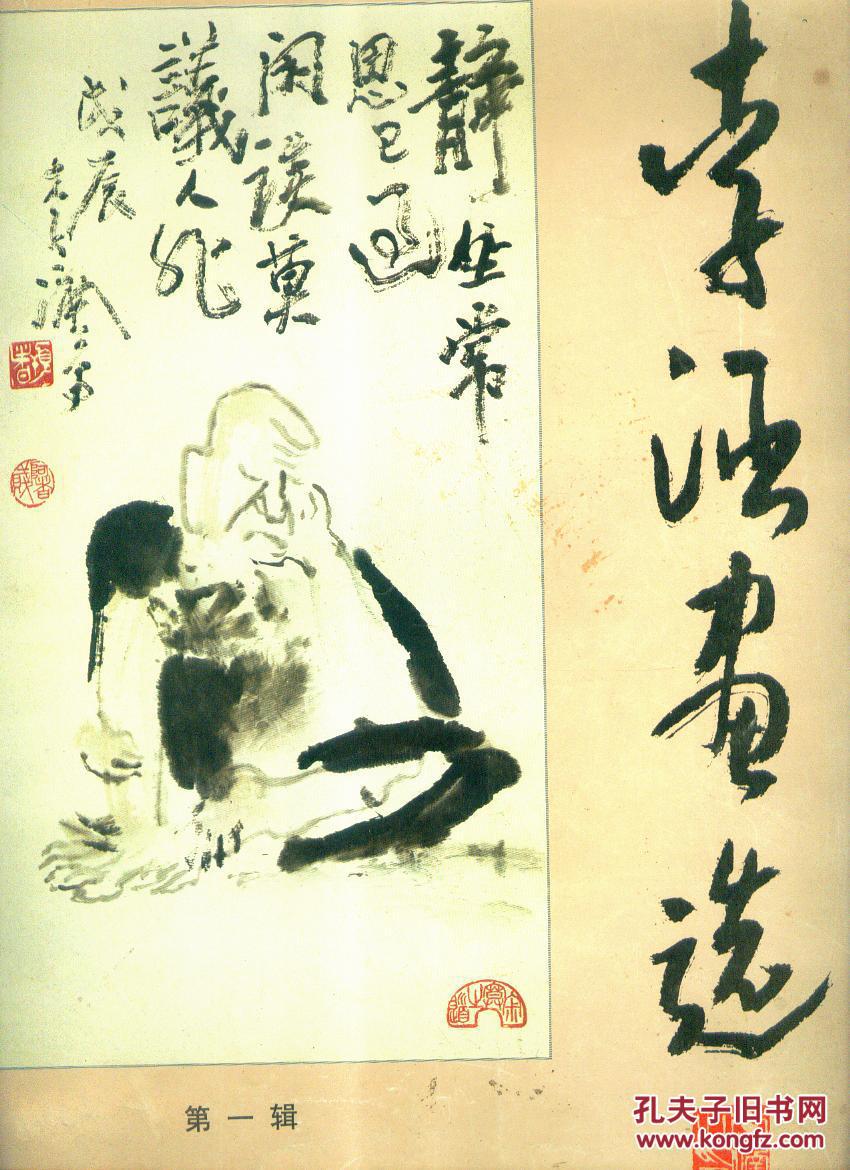 李
画选
静坐常
思己过
闲谈莫
議人非
戊辰
第一辑
孔夫子旧书网
www.kongfz.com